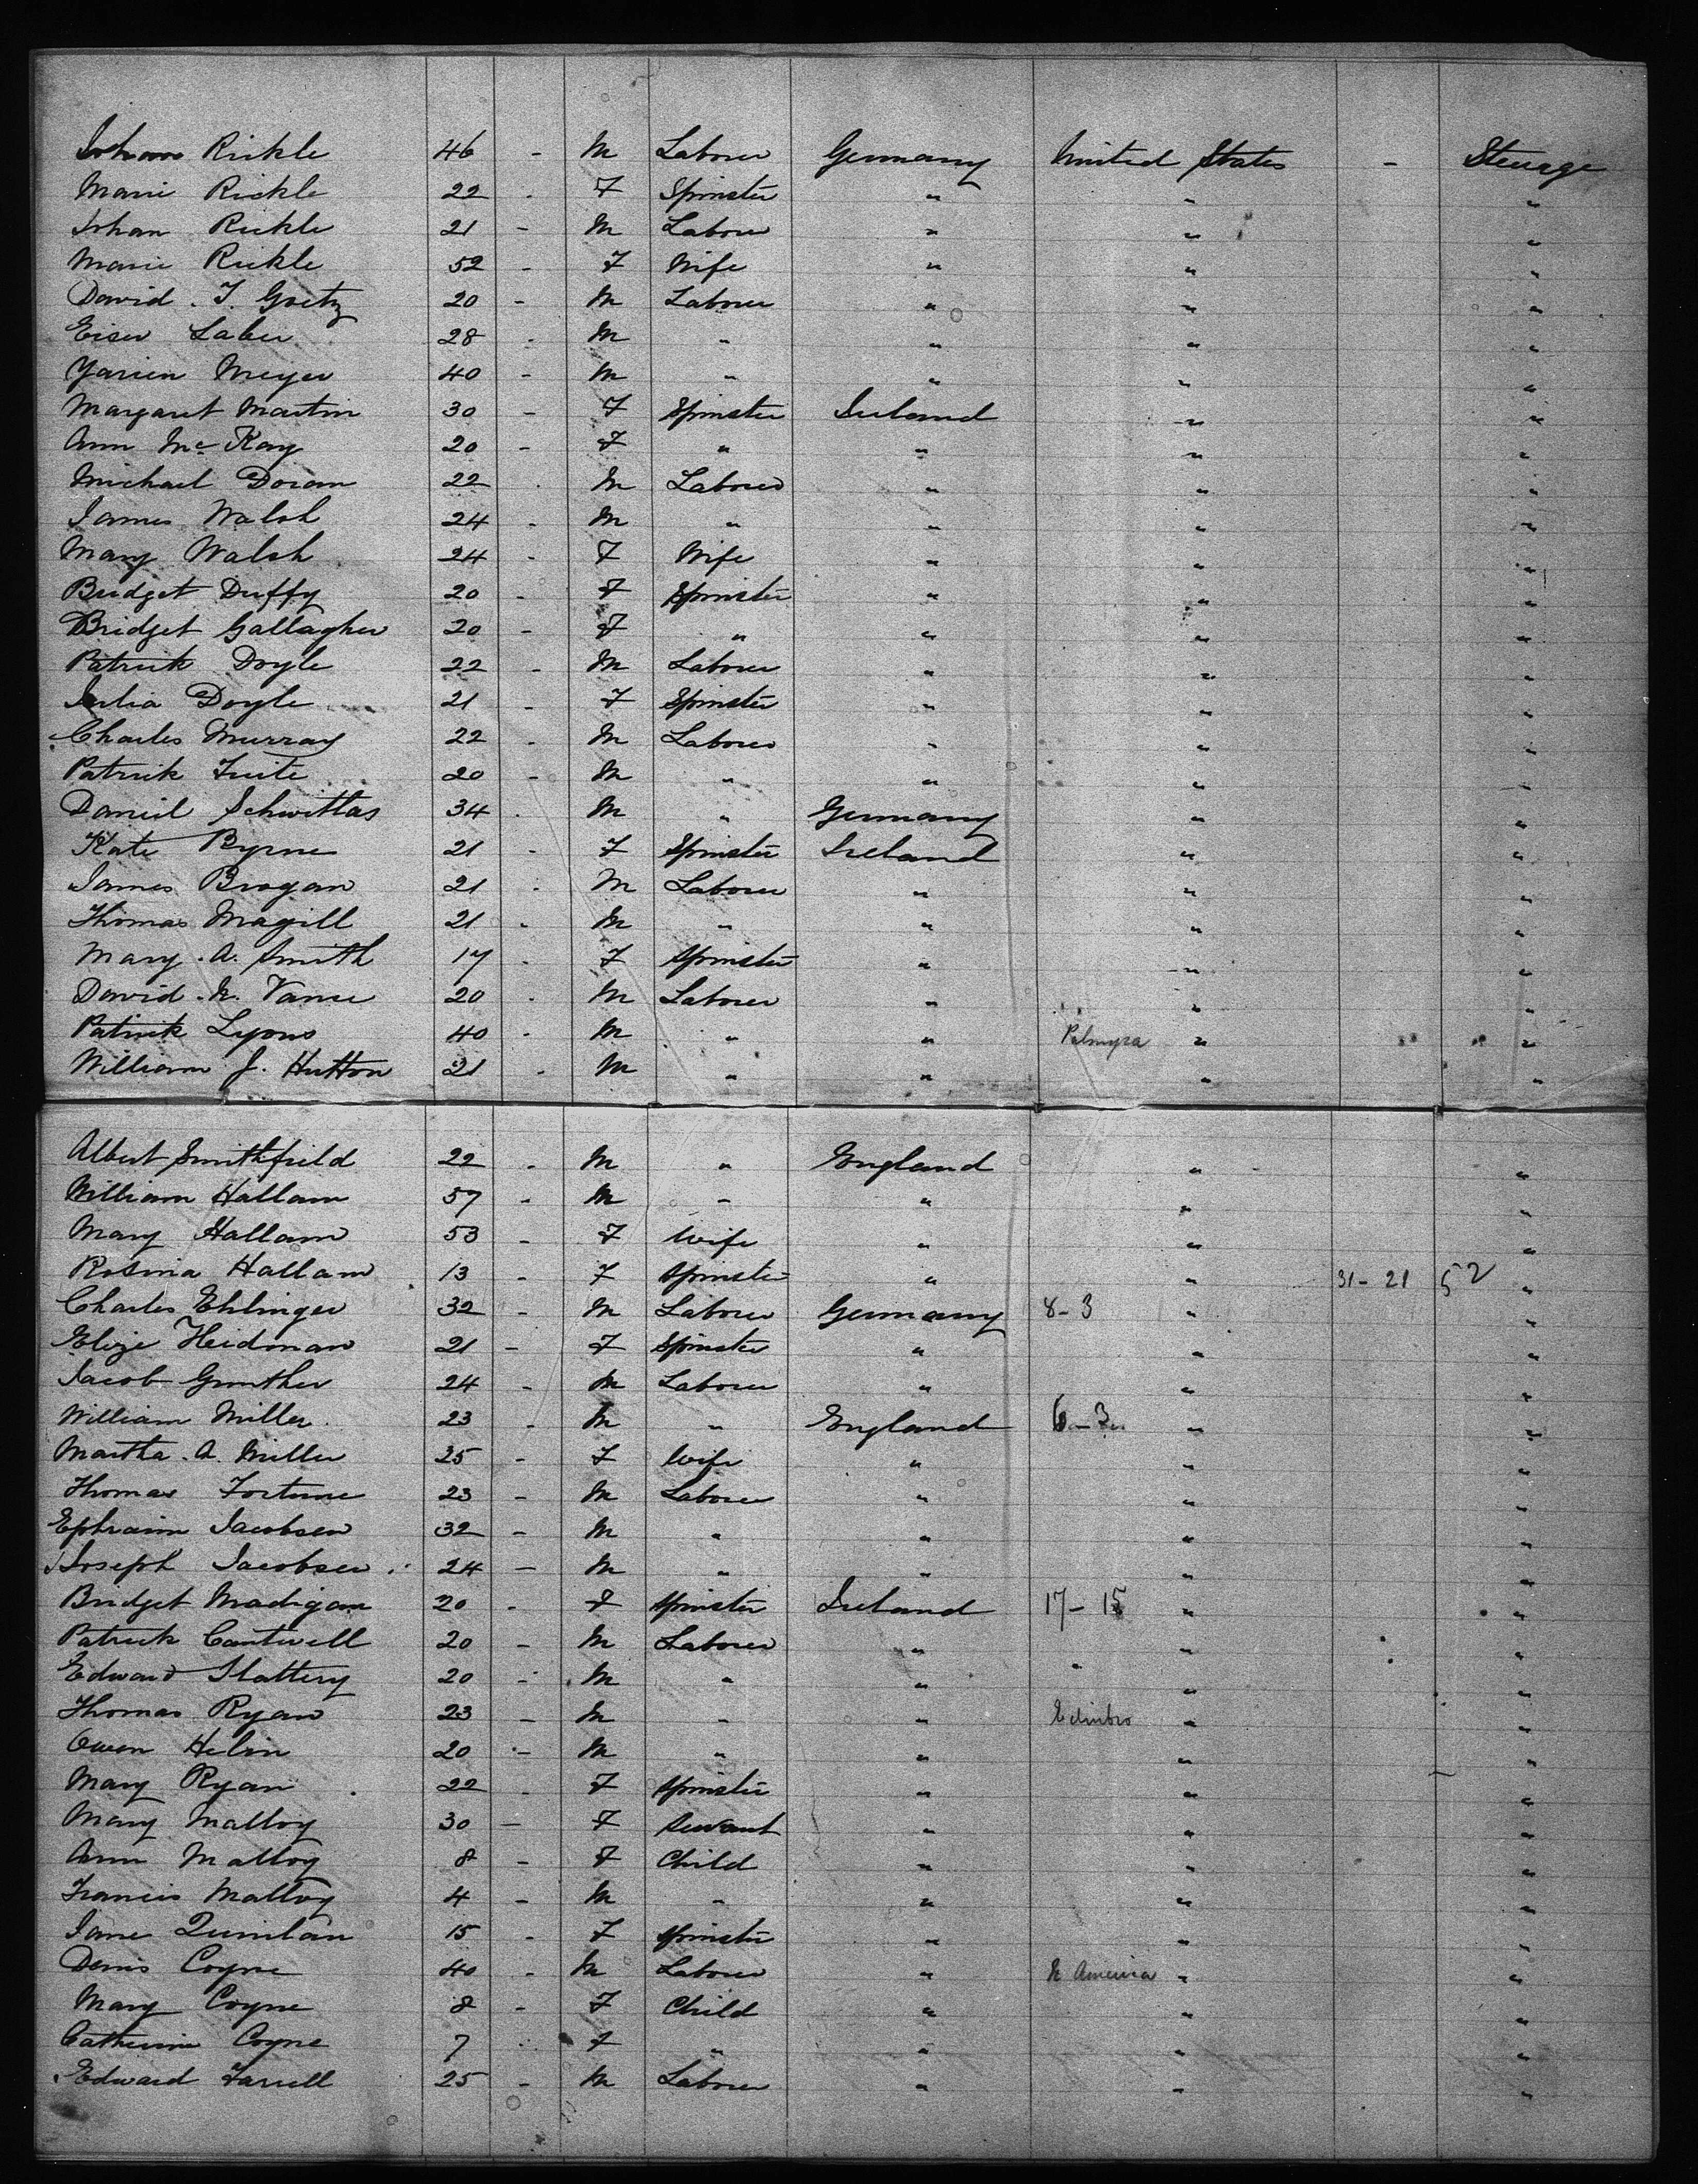 Johann Rickle 46 - M Laborer Germany United States - Steerage
Marie Rickle 22 - F Spinster " " "
Johan Rickle 21 - M Laborer " " "
Marie Rickle 52 - F Wife " " "
David . T. Goetz 20 - M Laborer " " "
Eiser Laber 28 - M " " " "
Meyer 40 - M " " " "
Margaret Martin 30 - F Spinster Ireland " "
Ann McKay 20 - F " " " "
Michael Doran 22 - M Laborer " " "
James Walsh 24 - M " " " "
Mary Walsh 24 - F Wife " " "
Bridget Duffy 20 - F Spinster " " "
Bridget Gallagher 20 - F " " " "
Patrick Doyle 22 - M Laborer " " "
Julia Doyle 21 - F Spinster " " "
Charles Murray 22 - M Laborer " " "
Patrick Fuite 20 - M " " " "
Daniel Schwittas 34 - M " Germany " "
Kate Byrne 21 - F Spinster Ireland " "
James Brogan 21 - M Laborer " " "
Thomas Magill 21 - M " " " "
Mary . A. Smith 17 - F Spinster " " "
David . N. Vance 20 - M Laborer " " "
Patrick Lyons 40 - M " " Palmyra " "
William J. Hutton 21 - M " " " "
Albert Smithfield 22 - M " England " "
William Hallam 57 - M " " " "
Mary Hallam 53 - F Wife " " "
Rosina Hallam 13 - F Spinster " " 31-21 52 "
Charles Ehlinger 32 - M Laborer Germany 8-3 " "
Elize Heidman 21 - F Spinster " " "
Jacob Gunther 24 - M Laborer " " "
William Miller 23 - M " England 6-3 " "
Martha . A. Miller 25 - F Wife " " "
Thomas Fortune 23 - M Laborer " " "
Ephraim Jacobsen 32 - M " " " "
Joseph Jacobsen 24 - M " " " "
Bridget Madigan 20 - F Spinster Ireland 17-15 " "
Patrick Cantwell 20 - M Laborer " " "
Edward Slattery 20 - M " " " "
Thomas Ryan 23 - M " " Edinbro " "
Owen Helin 20 - M " " " "
Mary Ryan 22 - F Spinster " " "
Mary Malloy 30 - F Servant " " "
Ann Malloy 8 - F Child " " "
Francis Malloy 4 - M " " " "
Jane Quinlan 15 - F Spinster " " "
Denis Coyne 40 - M Laborer " N America " "
Mary Coyne 8 - F Child " " "
Catherine Coyne 7 - F " " " "
Edward Farrell 25 - M Laborer " " "